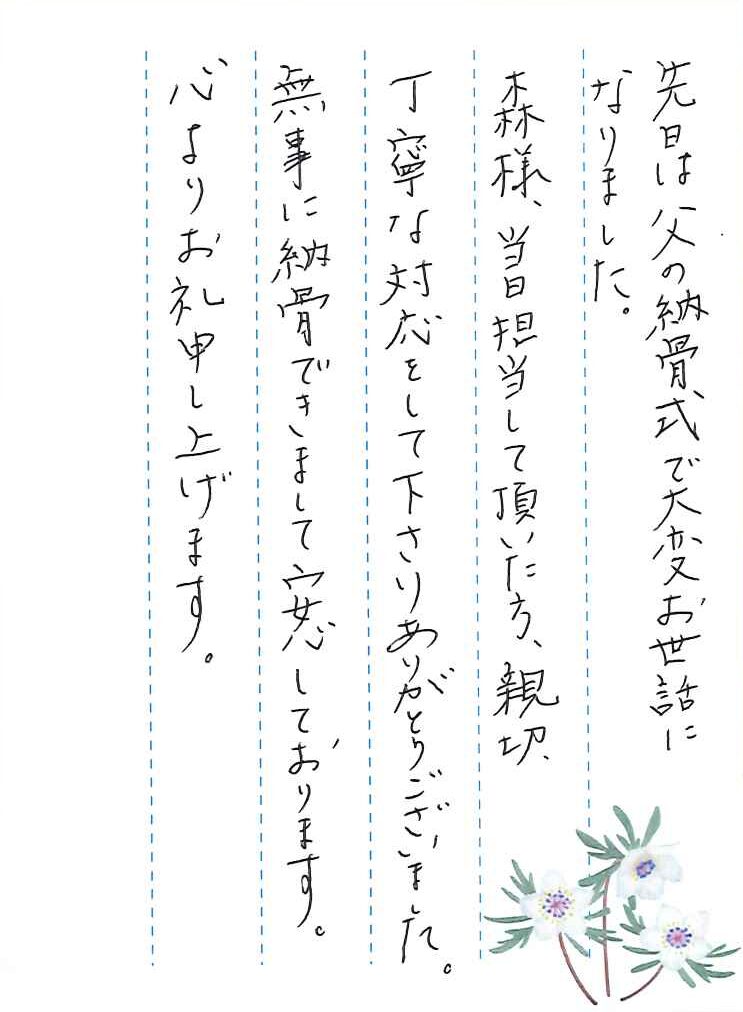 先日は父の納骨式で大変お世話に
なりました。
森様、当日担当して頂いた方、親切、
丁寧な対応をして下さりありがとうございました。
無事に納骨できまして安心しております。
心よりお礼申し上げます。